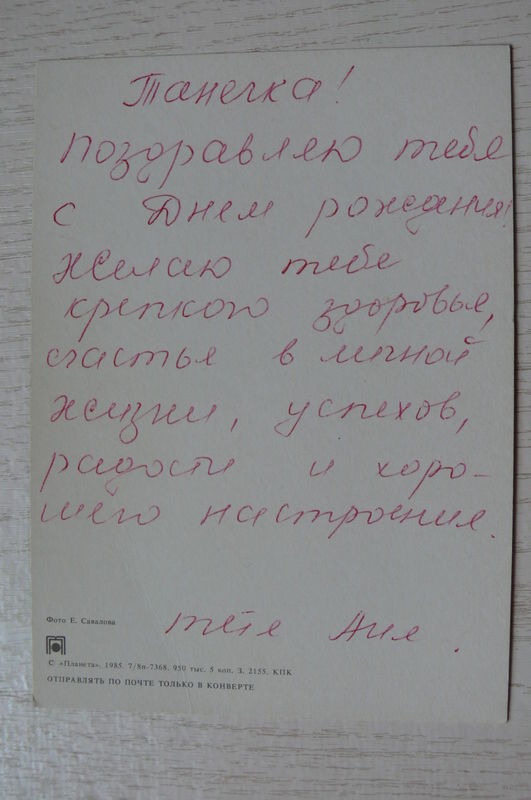 Танечка!
Поздравляю тебя
с Днем рождения!
Желаю тебе
крепкого здоровья,
счастья в личной
жизни, успехов,
радости и хоро-
шего настроения.
тётя Аня.
Фото Е. Савалова
С «Планета». 1985. 7/8п-7368. 950 тыс. 5 коп. З. 2155. КПК
ОТПРАВЛЯТЬ ПО ПОЧТЕ ТОЛЬКО В КОНВЕРТЕ